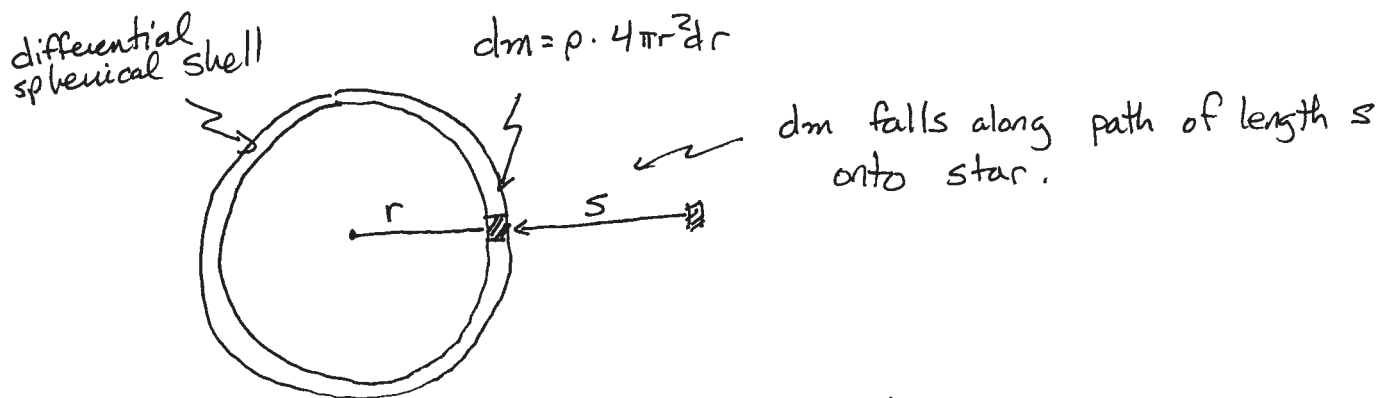 differential
spherical shell
dm = ρ · 4πr²dr
dm falls along path of length s
onto star.
r
s